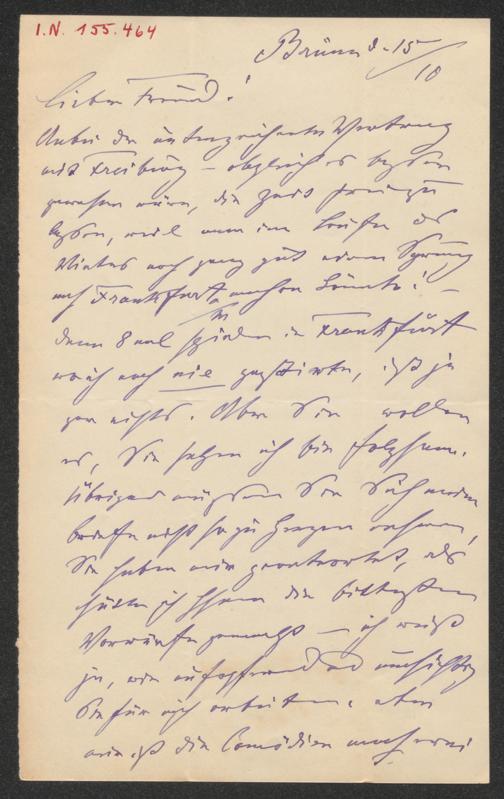 I.N. 155.464
Brünn d. 15/10
Lieber Freund!
Anbei der unterzeichnete Vertrag
mit Freiburg – obgleich es besser
gewesen wäre, die Zeit frei zu
lassen, weil man im Laufe des
Winters noch ganz gut einen Sprung
nach Frankfurt machen könnte! –
denn 8 mal spielen in Frankfurt
wo ich noch nie gastirte, ist ja
gar nichts. Aber Sie wollen
es, Sie sehen ich bin folgsam.
Übrigens müssen Sie Sich meine
Briefe nicht so zu Herzen nehmen,
Sie haben mir geantwortet, als
hätte ich Ihnen die bittersten
Vorwürfe gemacht – ich weiß
ja, wie aufopfernd und umsichtig
Sie für mich arbeiten. Aber
mein ist die Comödien